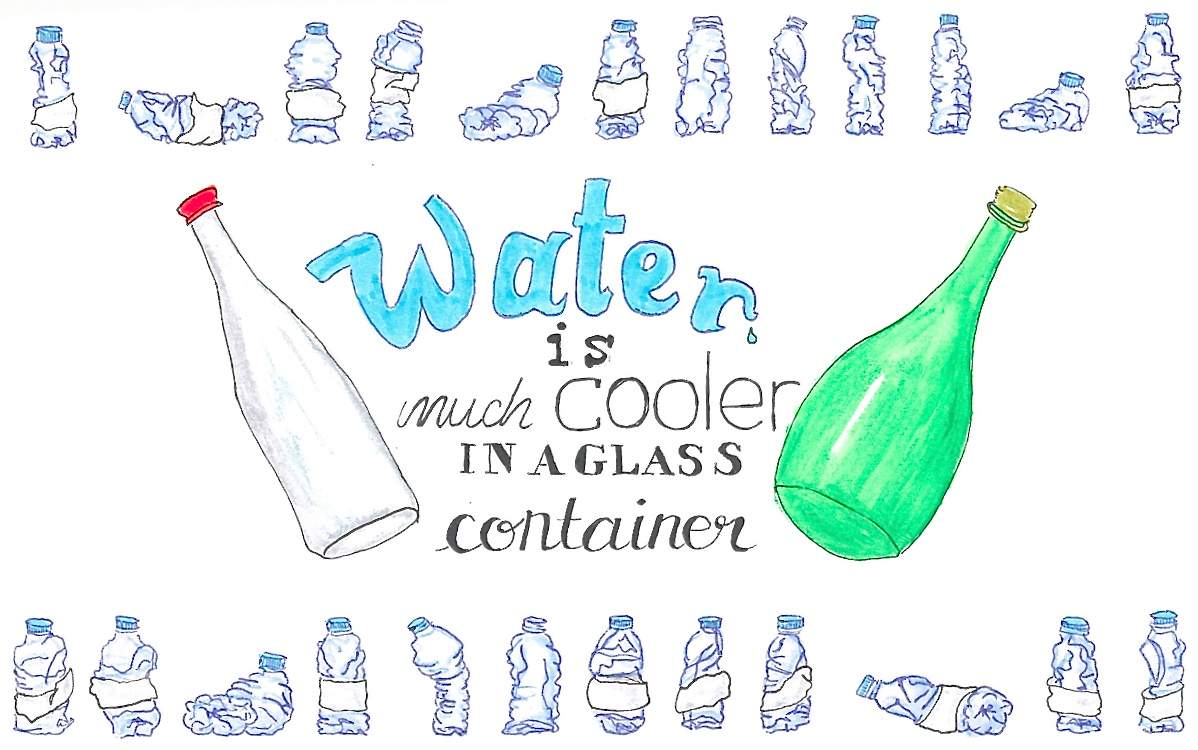 Water
is
much cooler
IN A GLASS
container